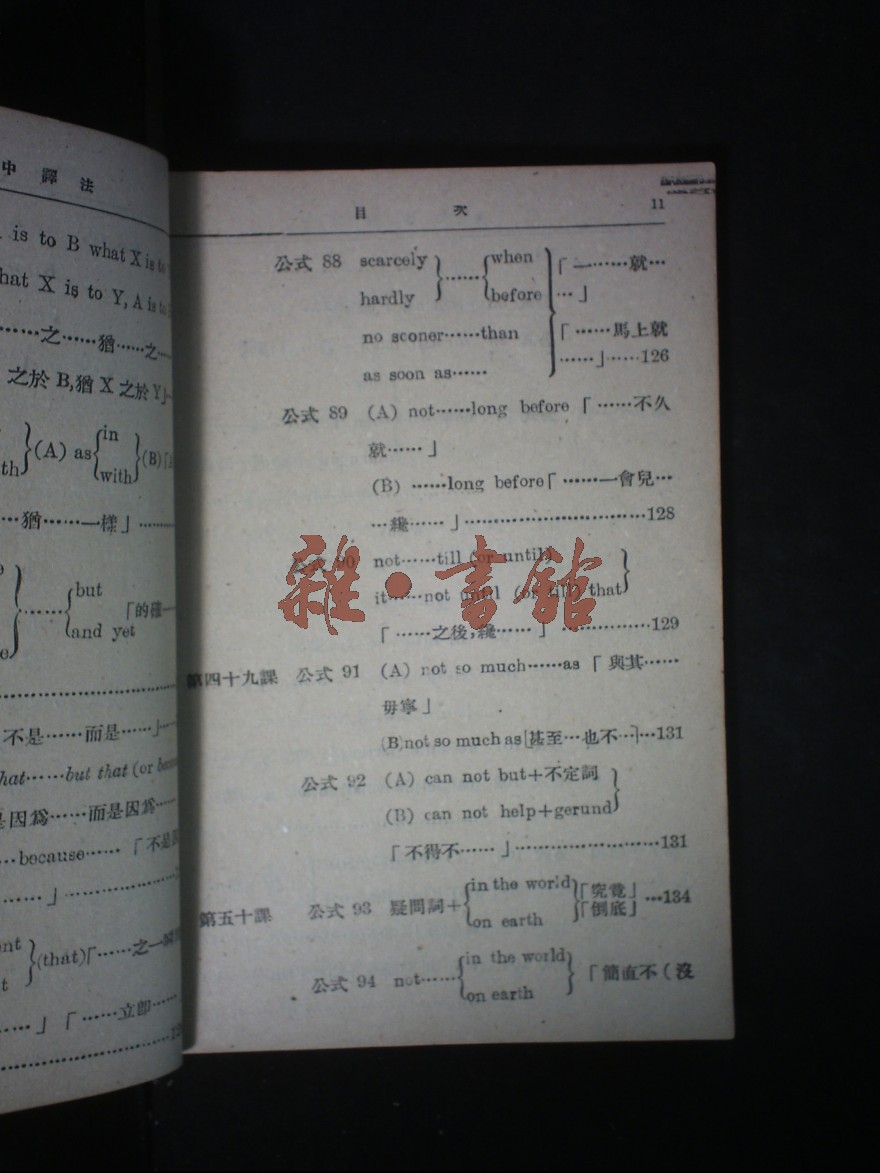 中譯法
is to B what X is to
hat X is to Y, A is to
……之……猶……之……
之於 B,猶 X 之於 Y」
th}(A) as{in with}(B)
…猶……一樣」………
……{but and yet 「的確
不是……而是……」
hat……but that (or
是因爲……而是因爲……
…because……「不是
……」………
}(that)「……之一瞬
……」「……立卽……
目 次 11
公式 88 scarcely}……{when 「一……就…
hardly before …」
no sconer……than 「……馬上就
as soon as…… ……」……126
公式 89 (A) not……long before 「……不久
就……」
(B) ……long before「……一會兒…
…纔……」………………………………128
公式 90 not……till (or until)
it……not until (or till) that}
「……之後,纔……」……………129
雜·書館
第四十九課 公式 91 (A) not so much……as 「與其……
毋寧」
(B)not so much as[甚至…也不…]…131
公式 92 (A) can not but+不定詞
(B) can not help+gerund}
「不得不……」……………………131
第五十課 公式 93 疑問詞+{in the world on earth}「究竟」「倒底」…134
公式 94 not……{in the world on earth} 「簡直不(沒